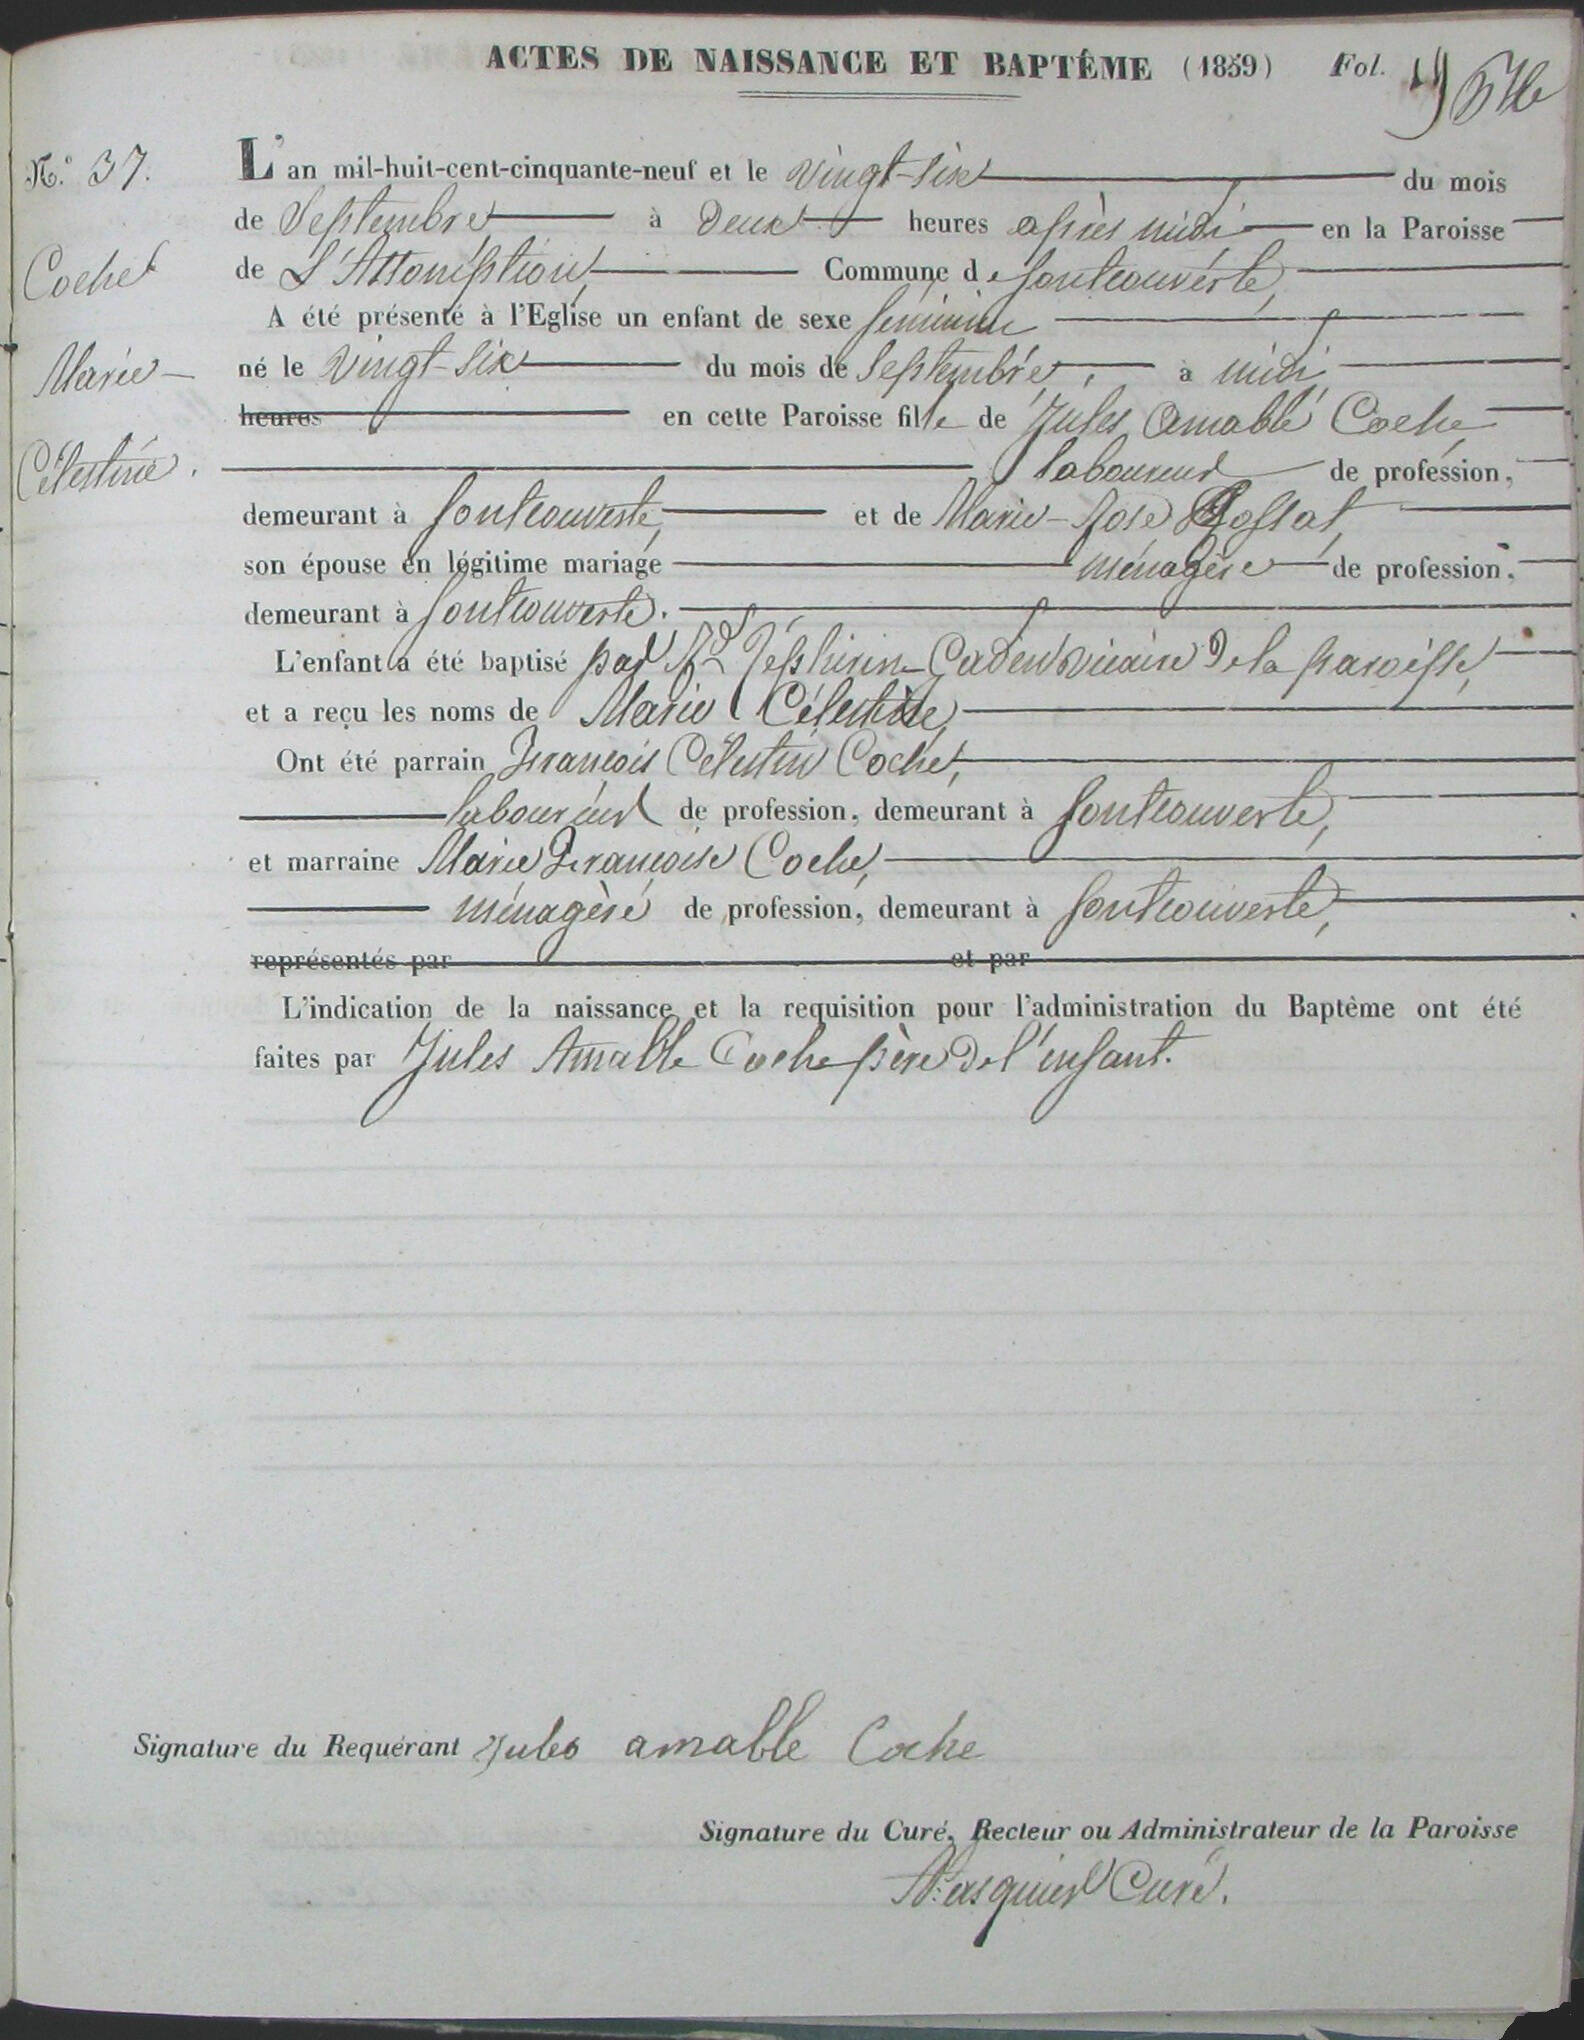 ACTES DE NAISSANCE ET BAPTÊME (1859) Fol. 19
N.° 37.
Coche
Marie
Célestine.
L'an mil-huit-cent-cinquante-neuf et le vingt-six du mois
de Septembre à deux heures après midi en la Paroisse
de L'Assomption, Commune de fontcouverte,
A été présenté à l'Eglise un enfant de sexe féminin
né le vingt-six du mois de Septembre, à midi
heures en cette Paroisse fille de Jules Amable Coche,
laboureur de profession,
demeurant à fontcouverte, et de Marie-Rose Rossat,
son épouse en légitime mariage ménagère de profession,
demeurant à fontcouverte.
L'enfant a été baptisé par Rd Zéphirin vicaire de la paroisse,
et a reçu les noms de Marie Célestine,
Ont été parrain François Célestin Coche,
laboureur de profession, demeurant à fontcouverte,
et marraine Marie Françoise Coche,
ménagère de profession, demeurant à fontcouverte,
représentés par et par
L'indication de la naissance et la requisition pour l'administration du Baptème ont été
faites par Jules Amable Coche père de l'enfant.
Signature du Requérant Jules amable Coche
Signature du Curé, Recteur ou Administrateur de la Paroisse
Curé.